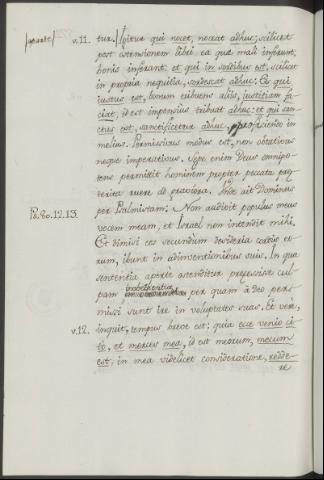 /aperte/ v.11. tur. // Igitur qui nocet, noceat adhuc; scilicet
post ostensionem libri ea quæ mali inferunt,
bonis inferant: et qui in sordibus est, scilicet
in propria nequitia, sordescat adhuc: Et qui
iustus est, bonum tribuens aliis, iustitiam fa-
ciat, id est impensius tribuat adhuc: et qui san-
ctus est, sanctificetur adhuc, proficiendo in
melius. Permissivus modus est, non obtativus
neque imperativus. Sepe enim Deus omnipo-
tens permittit hominem propter peccata præ-
terita ruere ad graviora. Inde ait Dominus
per Psalmistam: Non audivit populus meus
Ps. 80.12.13. vocem meam, et Israel non intendit mihi.
Et dimisi eos secundum desideria cordis eo-
rum, ibunt in adinventionibus suis. In qua
sententia aperte ostenditur præcessisse cul-
pam inobedientiæ per quam à Deo per-
missi sunt ire in voluptates suas. Et vere,
v.12. inquit, tempus breve est: quia ecce venio ci-
to, et merces mea, id est meorum, mecum
est; in mea videlicet consideratione, redde-
re